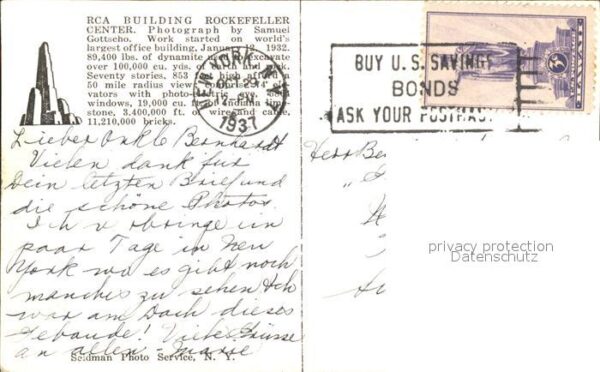 RCA BUILDING ROCKEFELLER
CENTER. Photograph by Samuel
Gottscho. Work started on world's
largest office building, January 1932.
89,400 lbs. of dynamite used excavate
over 100,000 cu. yds. of earth and rock.
Seventy stories, 853 high afford a
50 mile radius view.
vators with photo-electric eye.
windows, 19,000 cu. ft. of Indiana lime-
stone, 3,400,000 ft. of wire and cable,
11,210,000 bricks.
NEW YORK, N.Y.
1937
BUY U.S. SAVINGS
BONDS
ASK YOUR POSTMASTER
Lieber Onkle Bernhardt
Vielen dank für
Dein letzten Brief und
die schöne Photos.
Ich v bringe ein
paar Tage in New
York wo es gibt noch
manches zu sehen Ich
war am Dach dieses
Gebäude! Viele Grüsse
an allen - Marie
Herr Be
privacy protection
Datenschutz
Seidman Photo Service, N. Y.